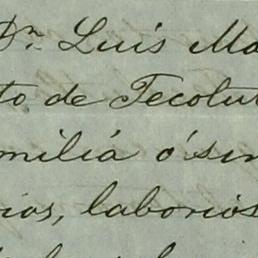 Dn. Luis Ma
to de Tecolut
miliá ó sin
ios, laborios